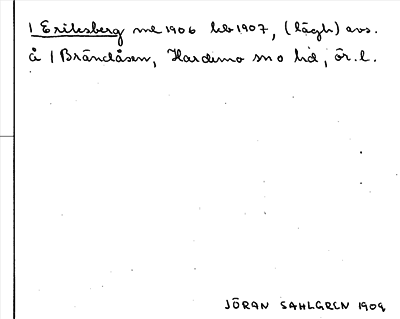 1 Eriksberg ml 1906 hb 1907, (lägh) avs.
å 1 Brändåsen, Hardemo sn o hd, ör. l.
JÖRAN SAHLGREN 1909